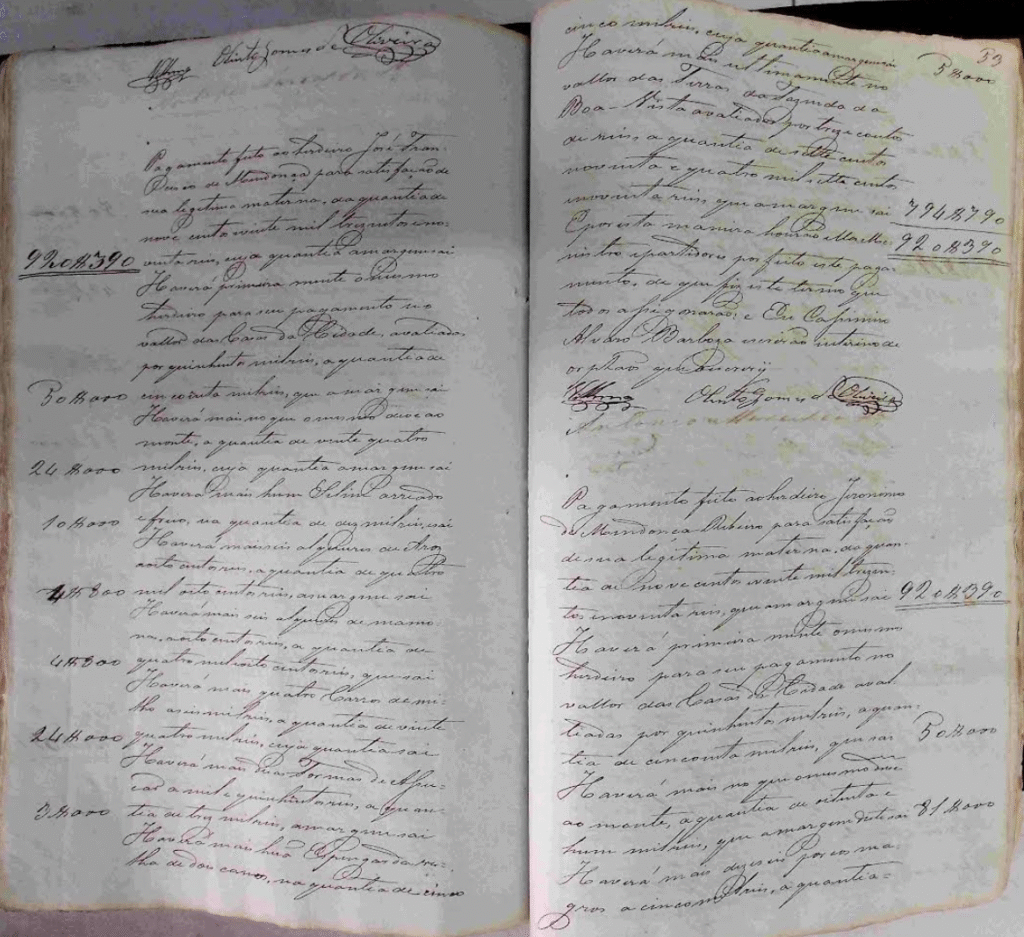 Olinto Gomes de Oliveira
Pagamento feito ao herdeiro José Fran-
Desio de Mendonça para satisfação de
sua legitima materna, da quantia de
nove cento vente mil trezentos eno-
venta reis, cuja quantia a margem sai
920$390
Haverá primeira mente o mesmo
herdeiro para seu pagamento no
vallor das Casas da Cidade, avaliadas
por quinhentos milreis, a quantia de
cincoenta milreis, que a margem sai
50$000
Haverá mais no que o mesmo deve ao
monte, a quantia de vinte quatro
milreis, cuja quantia a margem sai
24$000
Haverá mais hum Selim arreado
e freio, na quantia de dez milreis, sai
10$000
Haverá mais seis alqueires de Aros
a oito centos reis, a quantia de quatro
mil oito centos reis, a margem sai
4$800
Haverá mais seis alqueires de mamo-
na, a oito centos reis, a quantia de
quatro mil oito centos reis, que sai
4$800
Haverá mais quatro Carros de mi-
lho a seis milreis, a quantia de vinte
quatro milreis, cuja quantia sai
24$000
Haverá mais duas Formas de Assu-
car a mil e quinhentos reis, a quan-
tia de tres milreis, a margem sai
3$000
Haverá mais huã Espingarda ve-
lha de dois canos, na quantia de cinco
53
cinco milreis, cuja quantia a margem sai
5$000
Haverá mais ultimamente no
vallor das Terras da Fazenda da
Boa-Vista avaliada por treze contos
de reis, a quantia de sette centos
noventa e quatro mil sette centos
enoventa reis que a margem sai
794$790
E por esta maneira houve elle Mi-
920$390
nistro e partidores por feito este paga-
mento, de que fiz este termo que
todos assignarão: e Eu Casimiro
Alvaro Barboza escrivão interino de
orphaõs que escrevy
Olinto Gomes de Oliveira
Pagamento feito ao herdeiro Jeronimo
de Mendonca Ribeiro para satisfação
de sua legitima materna, da quan-
tia de nove centos evente mil trezen-
tos enoventa reis, que a margem sai
920$390
Haverá primeira mente o mesmo
herdeiro para seu pagamento no
vallor das Casas da Cidade aval
tiadas por quinhentos milreis, a quan-
tia de cincoenta milreis, que sai
50$000
Haverá mais no que o mesmo deve
ao monte, a quantia de oitenta e
hum milreis, que a margem deste sai
81$000
Haverá mais dezeseis porcos ma-
gros a cinco milreis, a quantia-